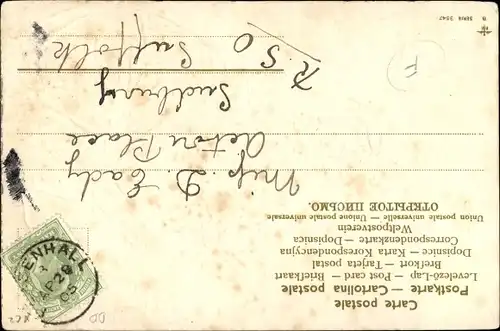 Carte postale
Postkarte — Cartolina postale
Levelező-Lap — Post card — Briefkaart
Brefkort — Tarjeta postal
Dopisnice — Karta Korespondencyjna
Correspondenzkarte — Dopisnica
Weltpostverein
Union postale universelle — Unione postale universale
ОТКРЫТОЕ ПИСЬМО.
Miss D. Eady
Acton Place
Sudbury
Suffolk
R.S.O
SERIE 2547
ENHALL
AP 28
05
F